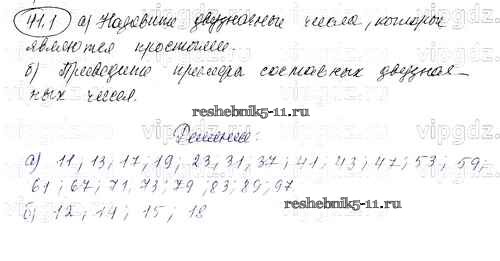 41.1 а) Назовите двузначные числа, которые
являются простыми.
б) Приведите примеры составных двузнач-
ных чисел.
reshebnik5-11.ru
Решение:
а) 11, 13; 17; 19; 23, 31, 37; 41; 43; 47; 53; 59;
61; 67; 71, 73; 79; 83; 89; 97
reshebnik5-11.ru
б) 12, 14; 15; 18